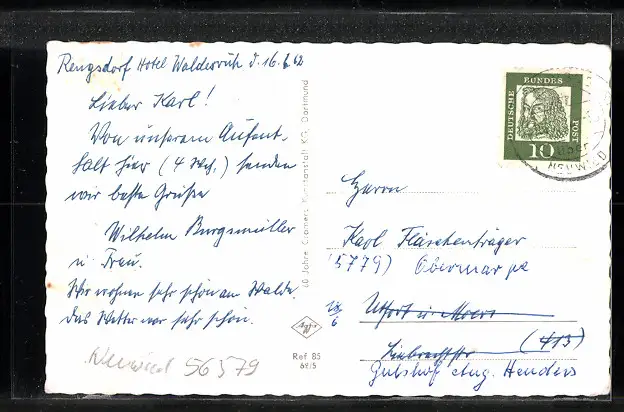 Rengsdorf Hotel Waldesruh d. 16.6.62
Lieber Karl!
Von unserem Aufent-
halt hier (4 Wch.) senden
wir beste Grüße
Wilhelm Burgsmüller
u. Frau.
Wir wohnen sehr schön am Walde.
Das Wetter war sehr schön.
Neuwied 56579
60 Jahre Cramers Kunstanstalt KG, Dortmund
Agfa
Ref 85
6215
DEUTSCHE
BUNDES
POST
10
NEUWIED
Herrn
Karl Fläschenträger
(5779) Obermarpe
Utfort u. Moers
(413)
Gutshof Aug. Henders